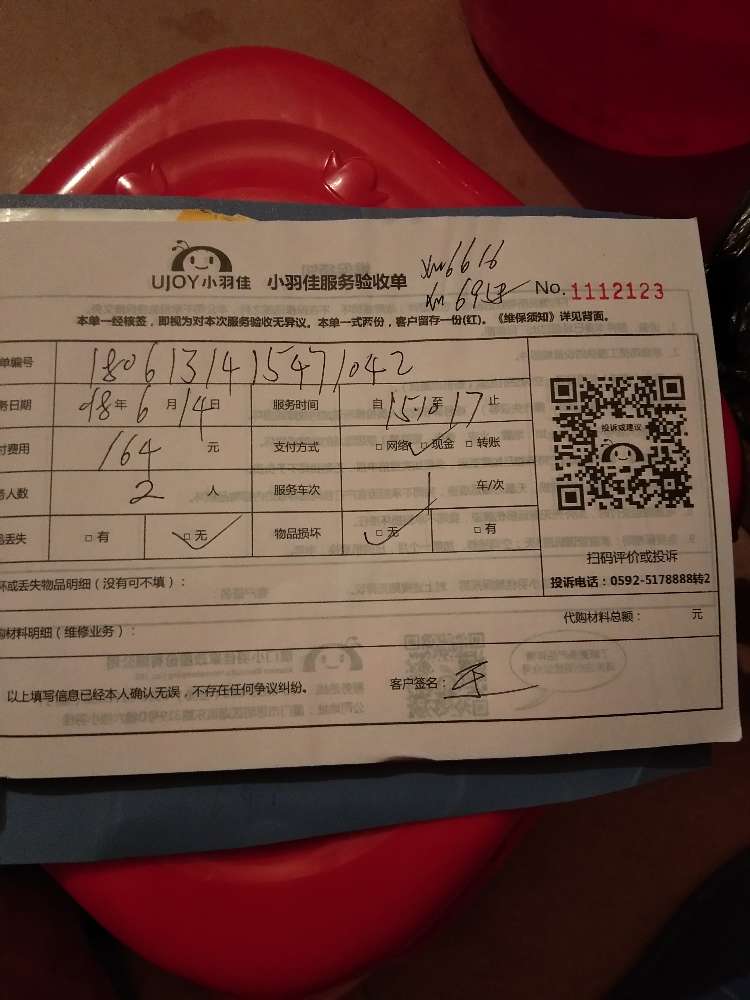 UJOY小羽佳 小羽佳服务验收单 No.1112123
xm6616
xm69
本单一经核签，即视为对本次服务验收无异议。本单一式两份，客户留存一份(红)。《维保须知》详见背面。
单编号 1806131415471042
务日期 18年6月14日 服务时间 自15:10至17止
付费用 164元 支付方式 □网络 □现金 □转账
务人数 2人 服务车次 车/次
品丢失 □有 □无 物品损坏 □无 □有
投诉或建议
扫码评价或投诉
投诉电话：0592-5178888转2
坏或丢失物品明细（没有可不填）：
代购材料总额： 元
购材料明细（维修业务）：
以上填写信息已经本人确认无误，不存在任何争议纠纷。 客户签名：